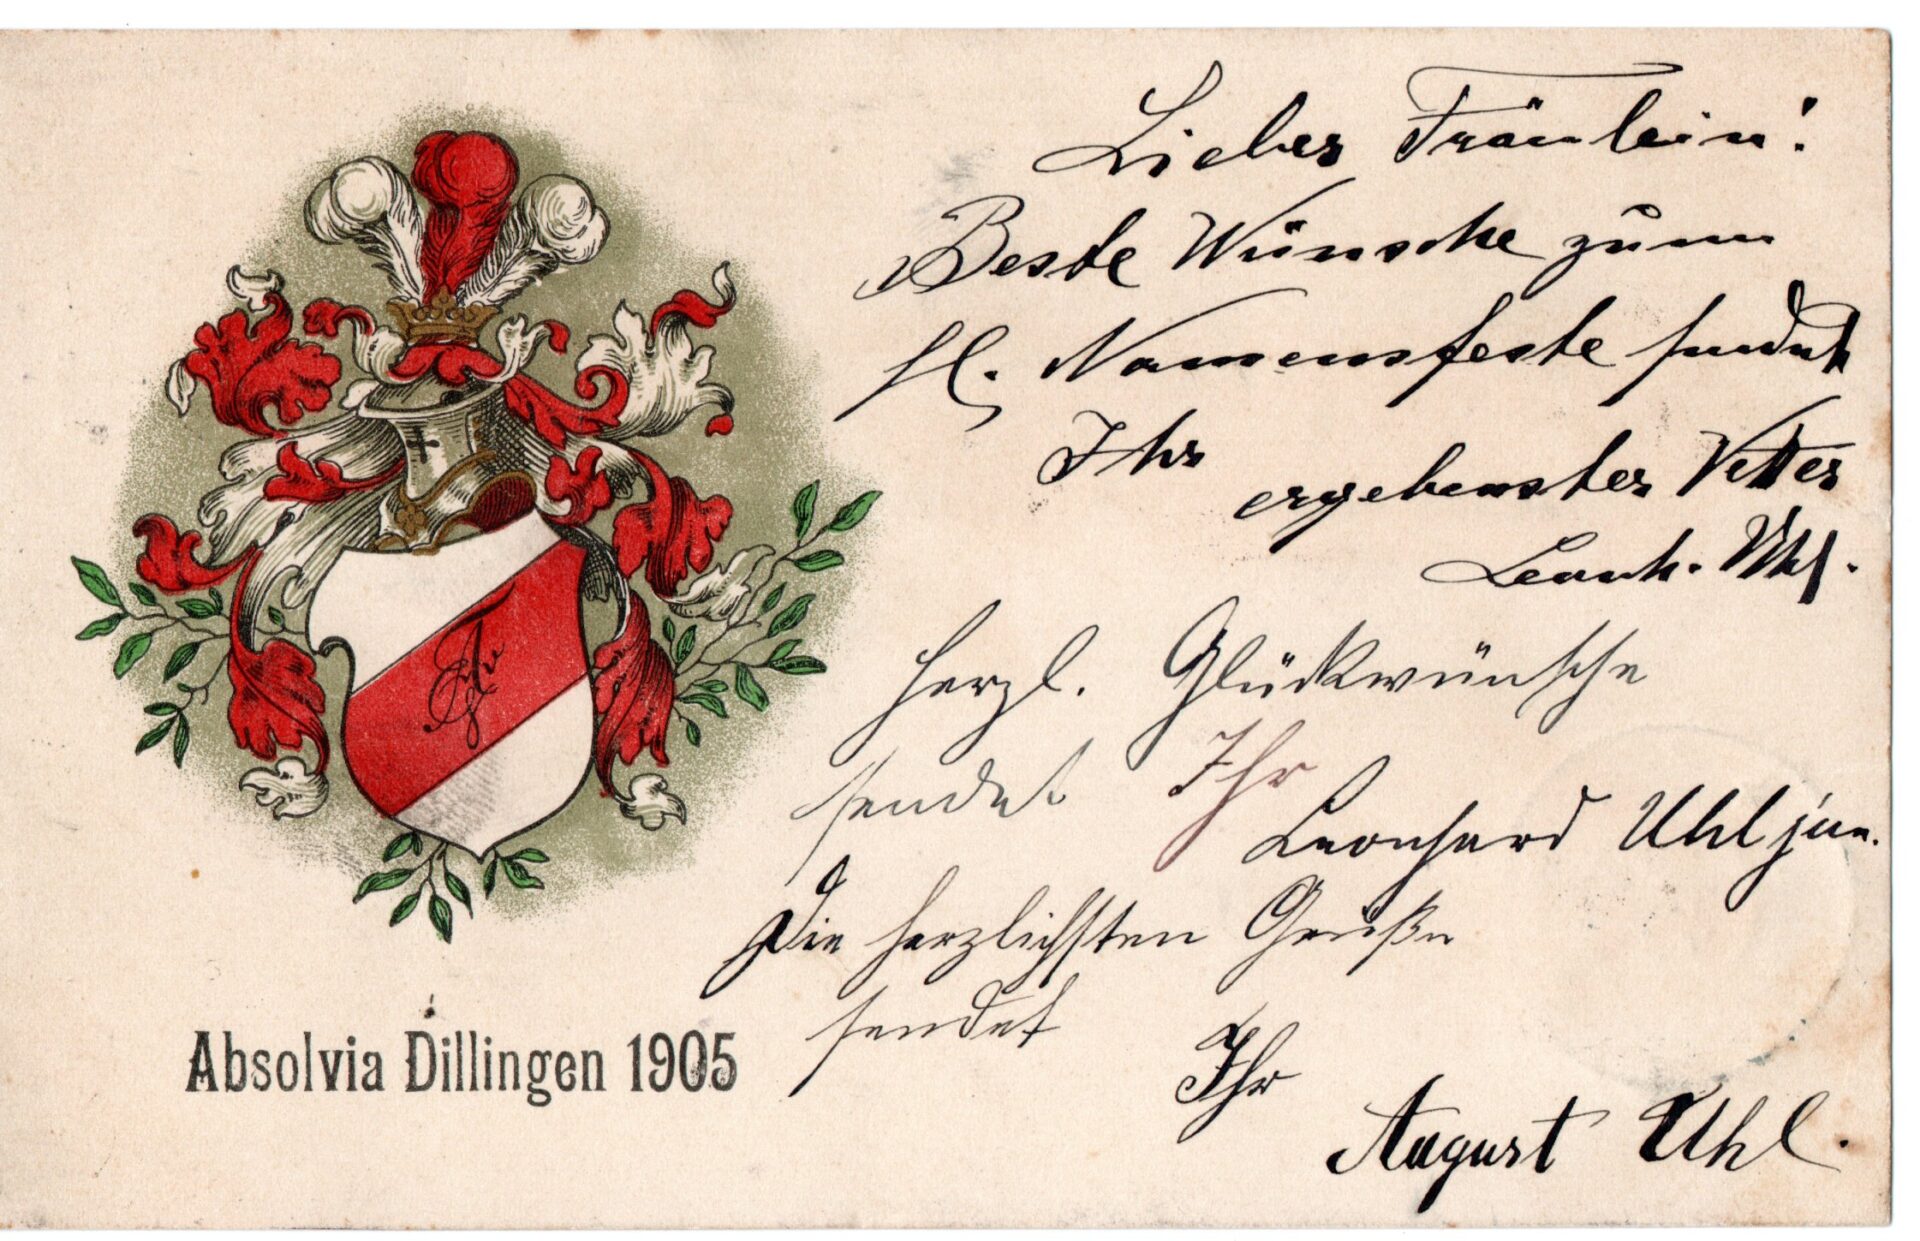 Liebes Fräulein!
Beste Wünsche zum
hl. Namensfeste sendet
Ihr
ergebenster Vetter
Leonh. Uhl.
Herzl. Glückwünsche
sendet Ihr
Leonhard Uhl jun.
Die herzlichsten Grüße
sendet
Ihr
August Uhl.
Absolvia Dillingen 1905